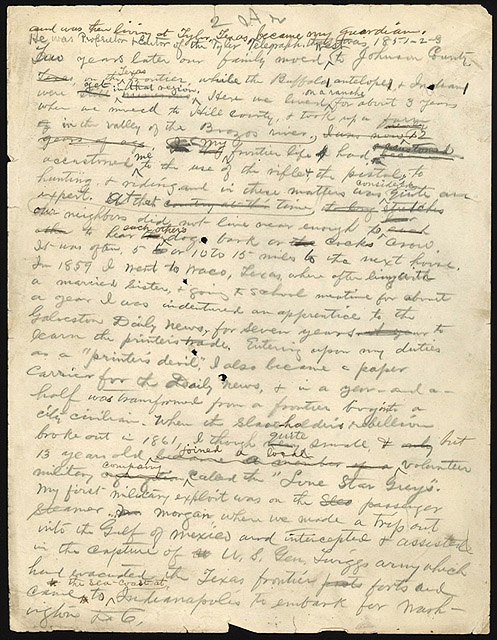 2
and was then living at Tyler, Texas, became my guardian.
He was Proprietor & Editor of the Tyler Telegraph. that was, 1851-2-3
Two years later our family moved west to Johnson County
Texas, on the Texas frontier, while the Buffalo antelope & Indian
were in that region. Here we lived on a ranch for about 3 years
when we moved to Hill county, & took up a farm
in the valley of the Brozos river, I was
My frontier life had
accustomed me to the use of the rifle & the pistol, to
hunting & riding and in these matters was considered quite an
expert. At that time
our neighbors did not live near enough to
to hear each others dogs bark or cocks crow.
It was often 5 or 10 to 15 miles to the next house.
In 1859 I went to Waco, Texas, where after living with
a married sister, & going to school meantime for about
a year I was indentured an apprentice to the
Galveston Daily News, for seven years to
learn the printers trade. Entering upon my duties
as a "printer's devil," I also became a paper
carrier for the Daily News, & in a year-and-a-
half was transformed from a frontier boy into a
city civilian. When the slaveholder's Rebellion
broke out in 1861, I though quite small, & but
13 years old joined a local volunteer
military company called the "Lone Star Greys".
My first military exploit was on the passenger
steamer Morgan where we made a trip out
into the Gulf of Mexico and intercepted & assisted
in the capture of U. S. Gen. Twiggs army which
had evacuated the Texas frontier forts and
came to the sea-coast at Indianapolis to embark for Wash-
ington D.C.